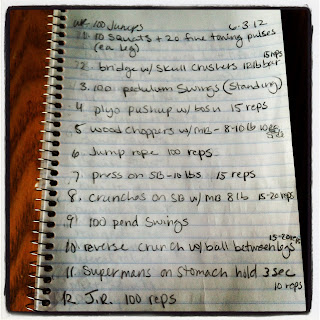 WU- 100 Jumps 6.3.12
1. 10 squats + 20 fine toning pulses
(ea leg)
15 reps
2. bridge w/ skull crushers 12lb bar
3. 100 pendulum swings (standing)
4 plyo pushup w/ bosu 15 reps
5 wood choppers w/ MB - 8-10lb 10 reps
6 Jump rope 100 reps
7 press on SB - 10lbs 15 reps
8. crunches on SB w/ MB 8lb 15-20 reps
9 100 pend swings
15-20 reps
10 reverse crunch w/ ball between legs
11 Supermans on stomach hold 3 sec
10 reps
12 J.R. 100 reps